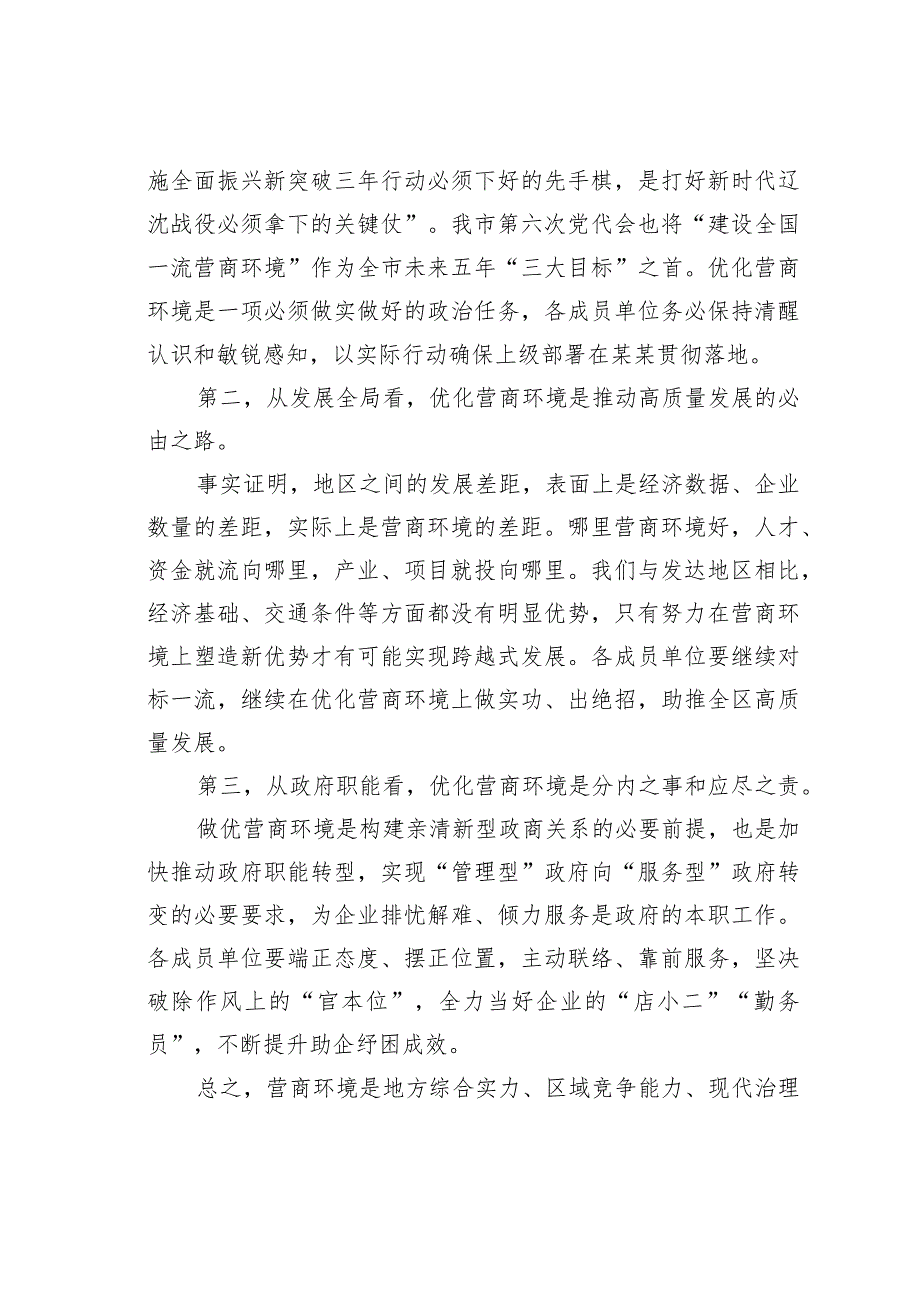 施全面振兴新突破三年行动必须下好的先手棋，是打好新时代辽
沈战役必须拿下的关键仗”。我市第六次党代会也将“建设全国
一流营商环境”作为全市未来五年“三大目标”之首。优化营商
环境是一项必须做实做好的政治任务，各成员单位务必保持清醒
认识和敏锐感知，以实际行动确保上级部署在某某贯彻落地。
第二，从发展全局看，优化营商环境是推动高质量发展的必
由之路。
事实证明，地区之间的发展差距，表面上是经济数据、企业
数量的差距，实际上是营商环境的差距。哪里营商环境好，人才、
资金就流向哪里，产业、项目就投向哪里。我们与发达地区相比，
经济基础、交通条件等方面都没有明显优势，只有努力在营商环
境上塑造新优势才有可能实现跨越式发展。各成员单位要继续对
标一流，继续在优化营商环境上做实功、出绝招，助推全区高质
量发展。
第三，从政府职能看，优化营商环境是分内之事和应尽之责。
做优营商环境是构建亲清新型政商关系的必要前提，也是加
快推动政府职能转型，实现“管理型”政府向“服务型”政府转
变的必要要求，为企业排忧解难、倾力服务是政府的本职工作。
各成员单位要端正态度、摆正位置，主动联络、靠前服务，坚决
破除作风上的“官本位”，全力当好企业的“店小二”“勤务
员”，不断提升助企纾困成效。
总之，营商环境是地方综合实力、区域竞争能力、现代治理